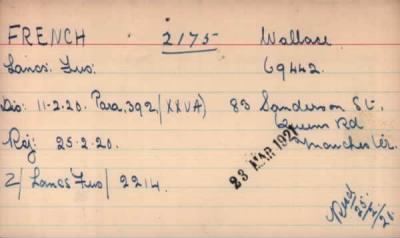 FRENCH 2175 Wallace
Lancs. Fus. 69442.
Dis: 11-2.20. Para.392,(XXVA) 83 Sanderson St.
Queens Rd
Rej: 25-2-20. Manchester.
23 MAR 192
Z/ Lancs Fus/ 2214.